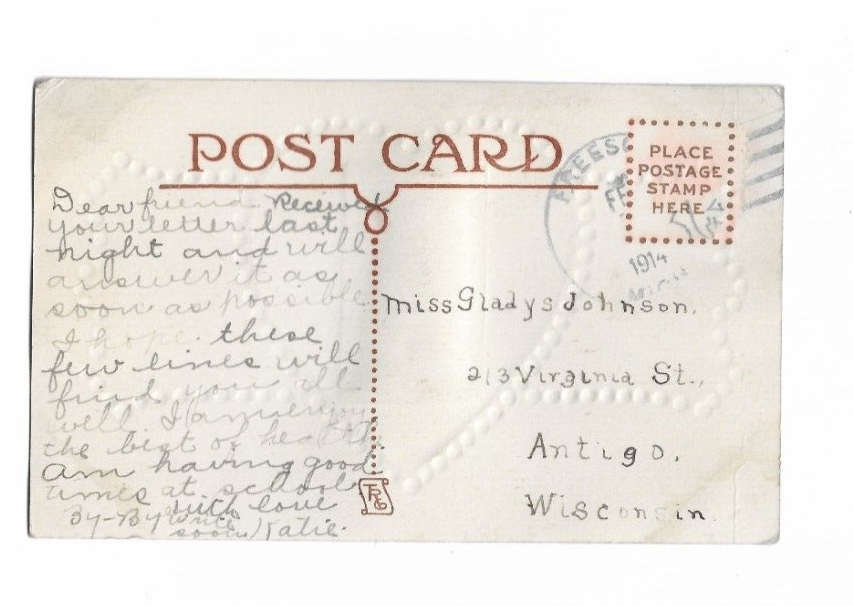 POST CARD
PLACE
POSTAGE
STAMP
HERE
FREES
FE
1914
MICH
Dear friend Received
your letter last
night and will
answer it as
soon as possible
I hope these
few lines will
find you all
well I am enjoy
the best of health
am having good
times at school
with love
By-By write
soon Katie.
Miss Gladys Johnson.
213 Virginia St.,
Antigo,
Wisconsin